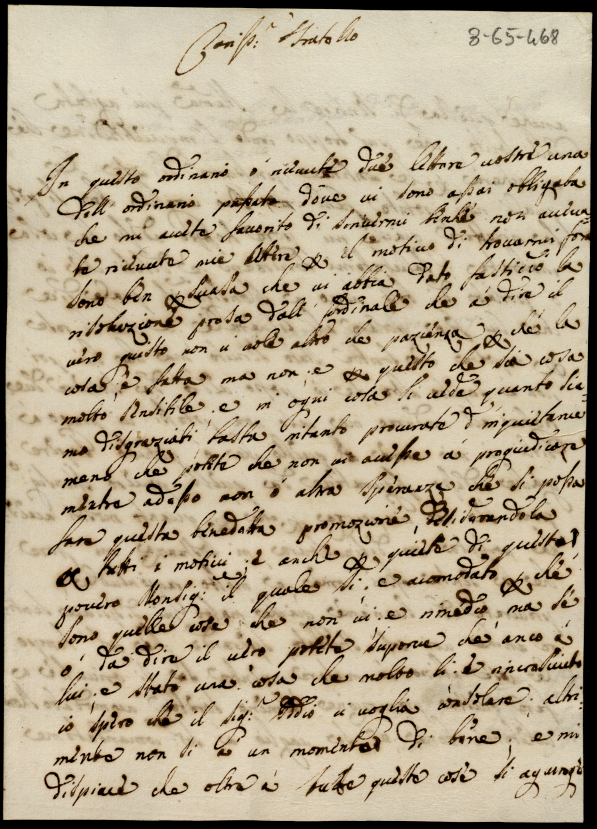 8-65-468
Cariss.º Fratello
In questo ordinario ó riceuute due lettere uostre una
dell ordinario passato doue ui sono assai obligata
che mi auete fauorito di scriuermi benche non aueua
te riceuute mie lettere & il motiuo di trouarmi for
sono ben & suasa che ui abbia dato fastidio la
risoluzione presa dall Cardinale che a dire il
uero questo non ci uole altro che pazienza & che la
cosa é fatta ma non e & questo che sia cosa
molto sensibile e in ogni cosa si uede quanto sia
mo disgraziati basta intanto procurate d inquietarue
meno che potete che non ui auesse á pregiudicare
mentre adesso non ó altra speranza che si possa
fare questa benedetta promozione desiderandola
& tutti i motiui e anche & quiete di questo
pouero Monsig.re il quale si e acomodato & che
sono quelle cose che non ui e rimedio ma se
ó da dire il uero potete suporue che anco á
lui e stato una cosa che molto li é rincresciuto
io spero che il Sig.re Iddio ci uoglia consolare altri
mente non si á un momento di bene e mi
dispiace che oltre á tutte queste cose si agiunge